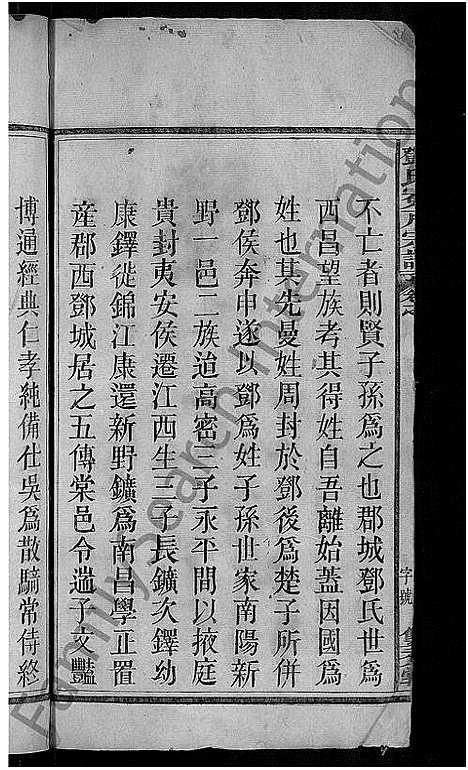 鄧氏
字號
不亡者則賢子孫爲之也郡城鄧氏世爲
西昌望族考其得姓自吾離始蓋因國爲
姓也其先曼姓周封於鄧後爲楚子所併
鄧侯奔申遂以鄧爲姓子孫世家南陽新
野一邑二族迨高密三子永平間以掖庭
貴封夷安侯遷江西生三子長鑛次鐸幼
康鐸徙錦江康還新野鑛爲南昌學正置
産郡西鄧城居之五傳棠邑令邋子文豔
博通經典仁孝純備仕吳爲散騎常侍終
FamilySearch International